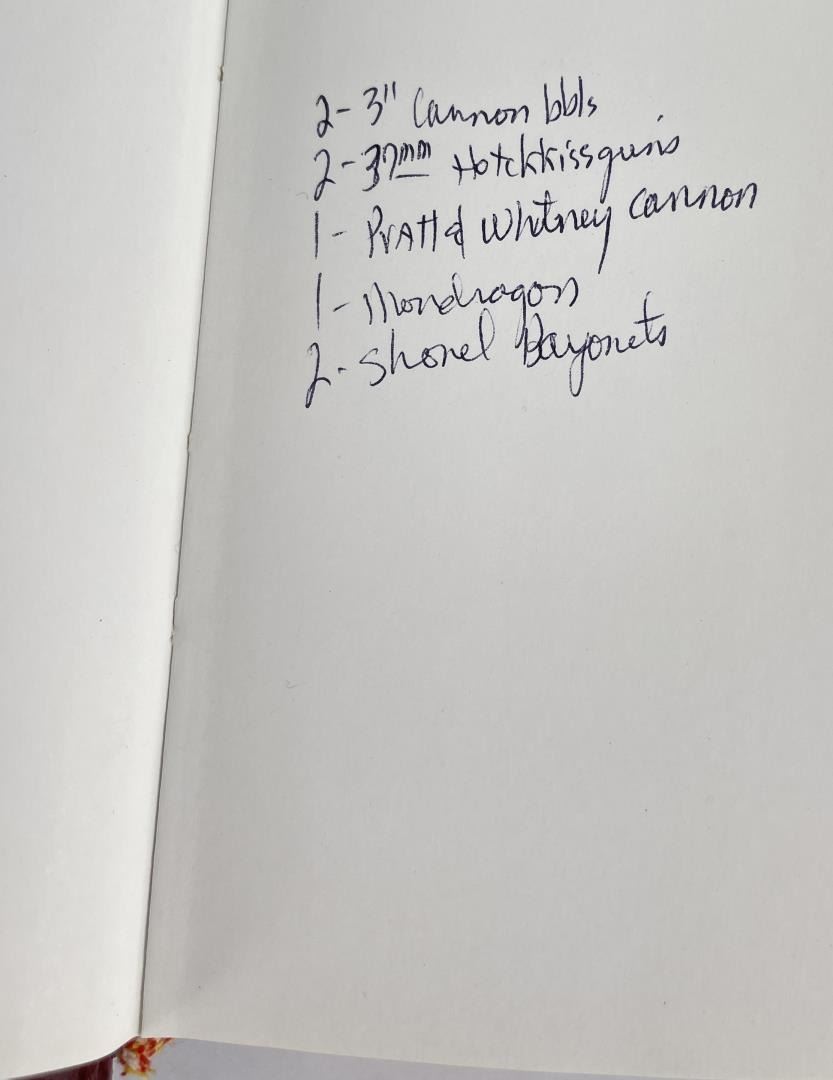 2- 3" Cannon bbls
2- 37mm Hotckkiss guns
1- Pratt & Whitney cannon
1- Mondragon
2- Shovel Bayonets